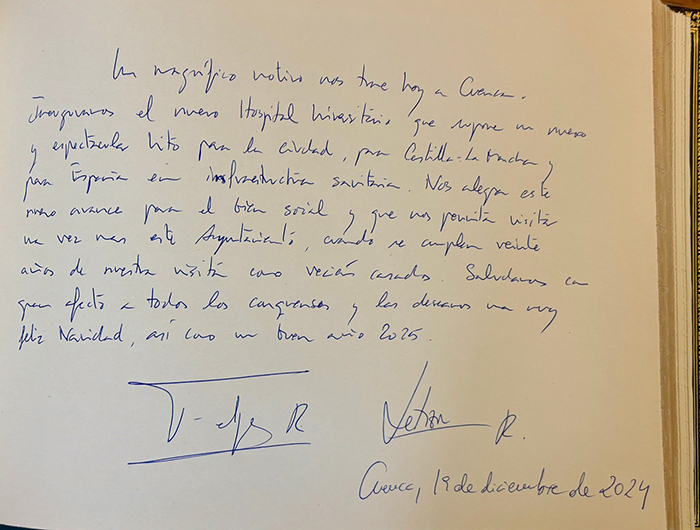 Un magnífico motivo nos trae hoy a Cuenca.
Inauguramos el nuevo Hospital Universitario, que supone un nuevo
y espectacular hito para la ciudad, para Castilla-La Mancha y
para España en infraestructura sanitaria. Nos alegra este
nuevo avance para el bien social y que nos permita visitar
una vez mas este Ayuntamiento, cuando se cumplen veinte
años de nuestra visita como recién casados. Saludamos con
gran afecto a todos los conquenses y les deseamos una muy
feliz Navidad, así como un buen año 2025.
Felipe R
Letizia R.
Cuenca, 19 de diciembre de 2024